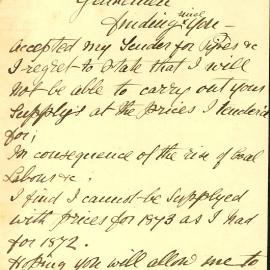 Gentlemen
finding since you -
accepted my Tender for Pipes &c
I regret to State that I will
not be able to carry out your
Supplys at the prices I tender'd
for;
In consequence of the rise of Coal
Labour &c;
I find I cannot be Supplyed
with prices for 1873 as I had
for 1872.
Hoping you will allow me to